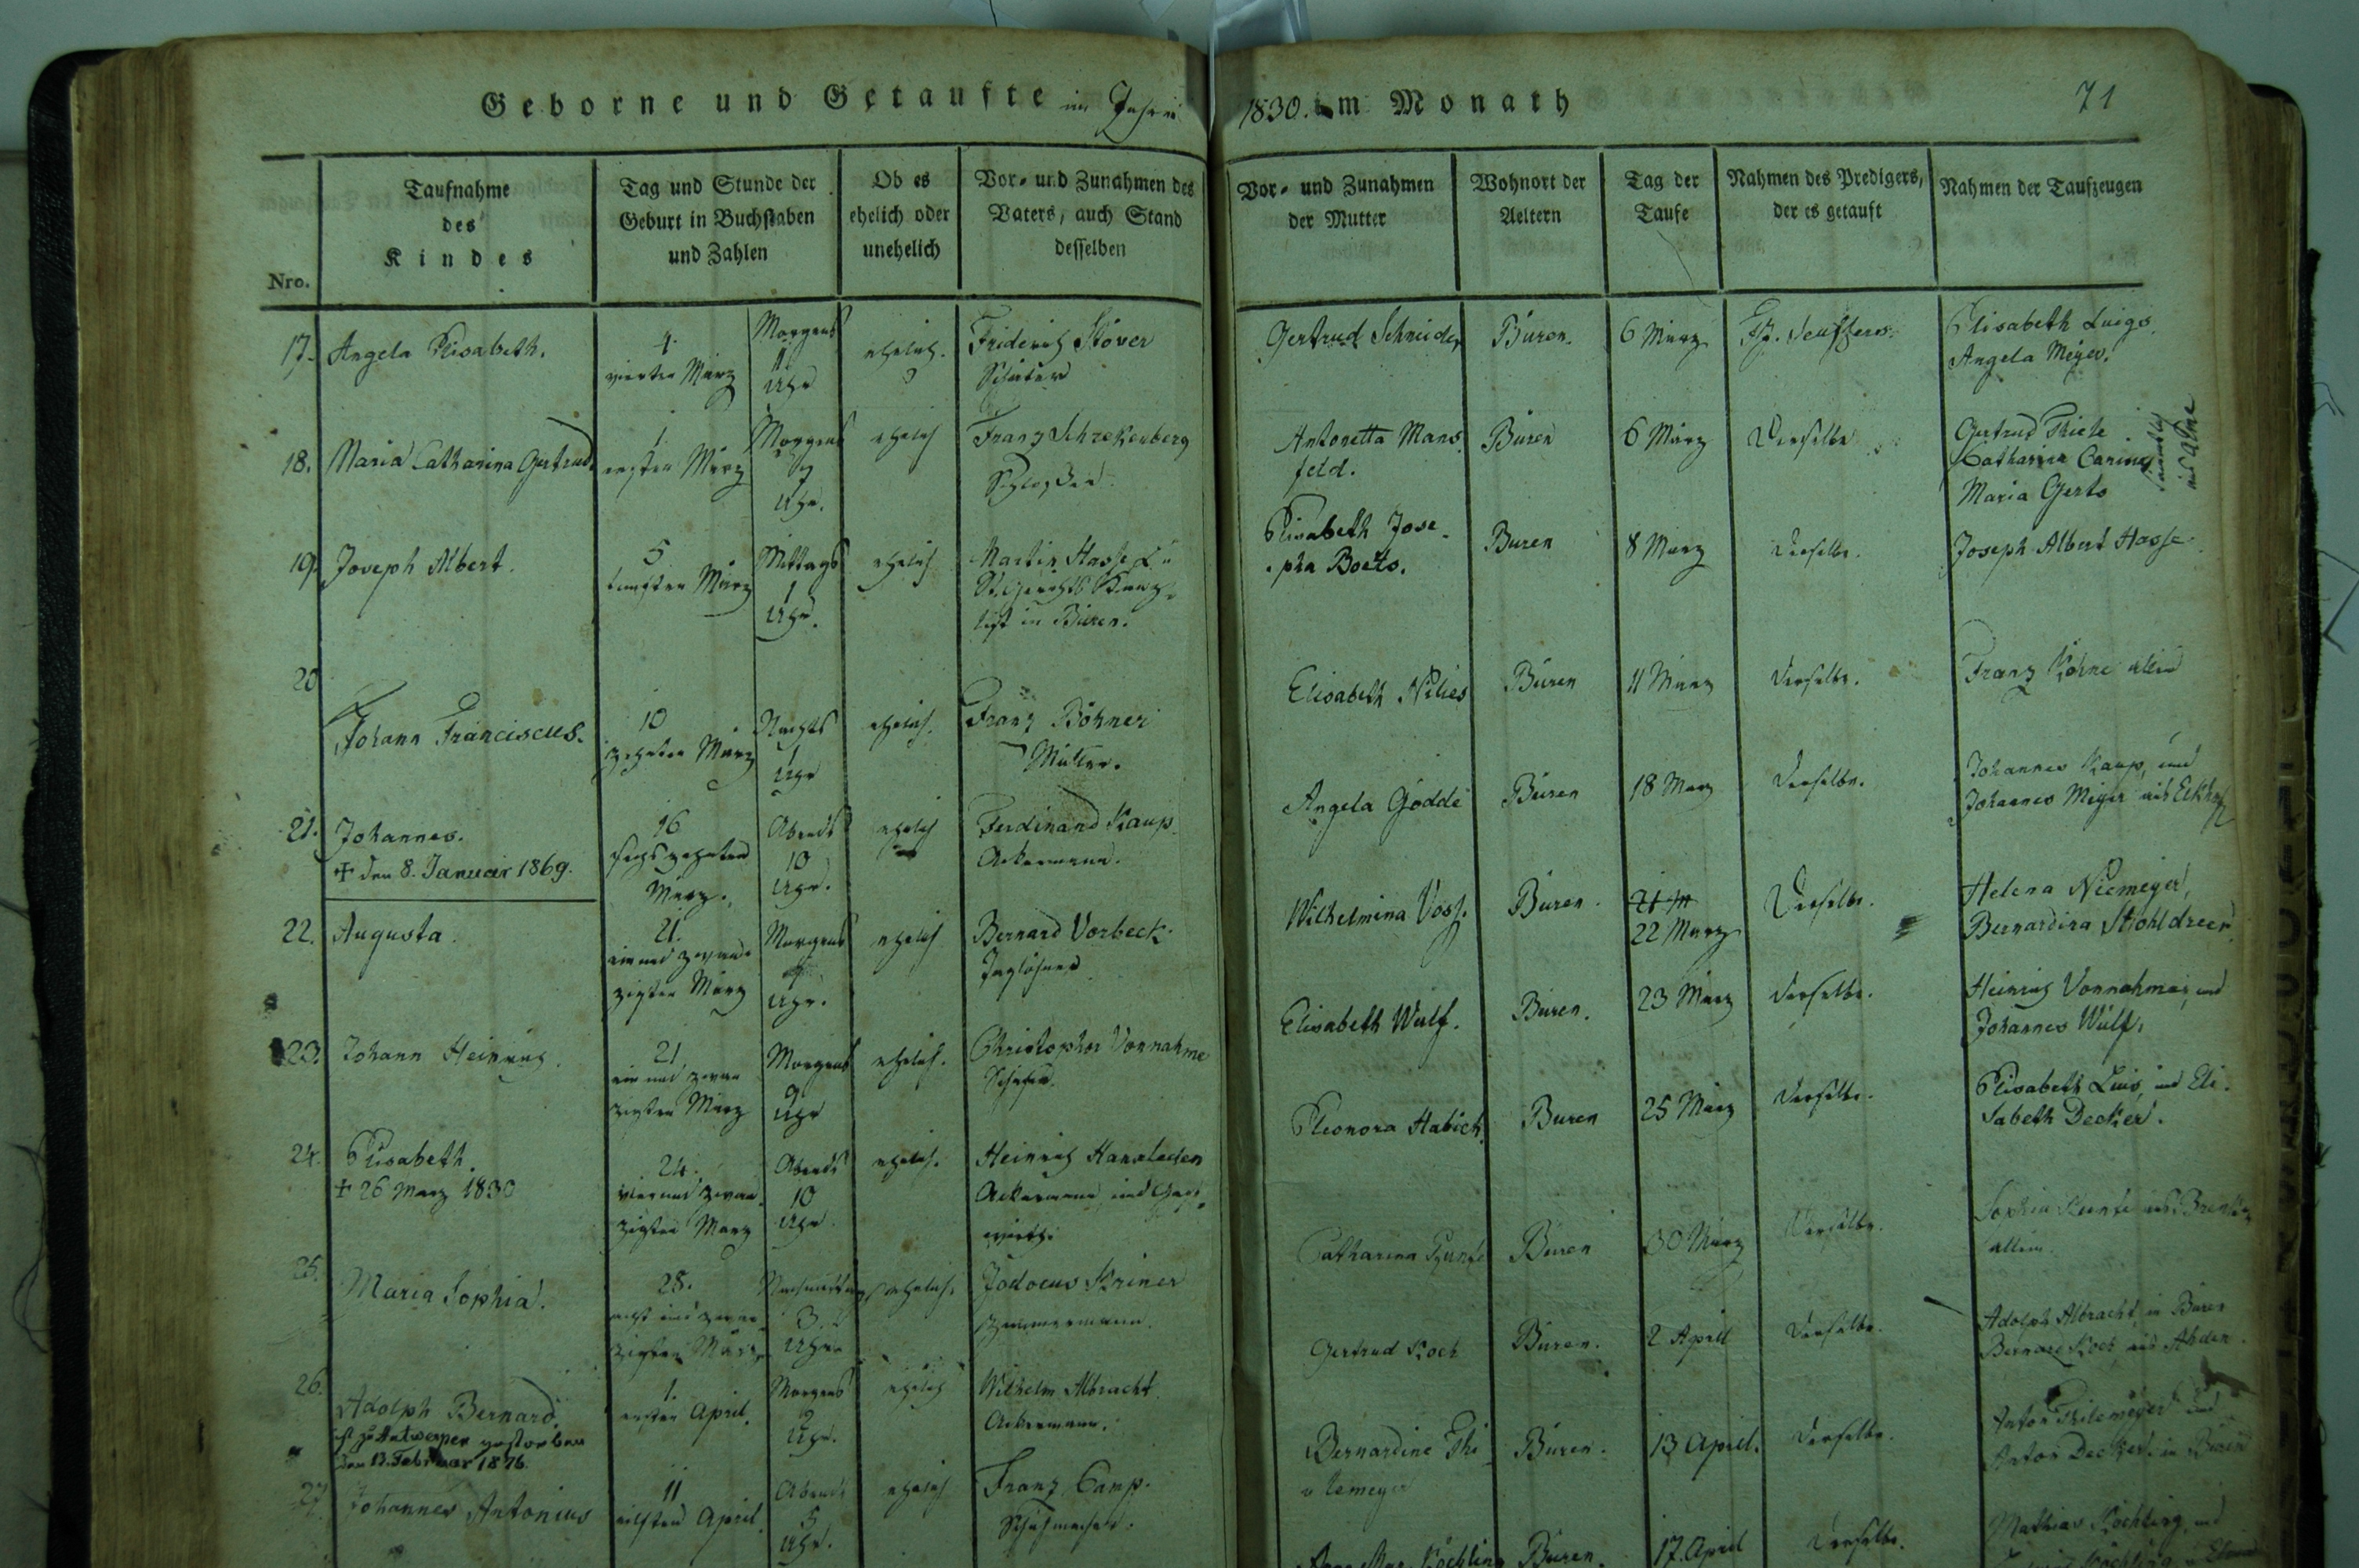 Geborne und Getaufte im Jahre 1830. im Monath
71
Nro.
Taufnahme
des
Kindes
Tag und Stunde der
Geburt in Buchstaben
und Zahlen
Ob es
ehelich oder
unehelich
Vor- und Zunahmen des
Vaters, auch Stand
desselben
Vor- und Zunahmen
der Mutter
Wohnort der
Aeltern
Tag der
Taufe
Nahmen des Predigers,
der es getauft
Nahmen der Taufzeugen
17. Angela Elisabeth.
4.
vierten März
Morgens
Uhr
ehelich.
Friderich Stöver
Gertrud Schneider
Büren.
6 März
Elisabeth
Angela Meyer.
18. Maria Catharina Gertrud
1
ersten März
Morgens
Uhr.
ehelich
Franz Schrekenberg
Schlosser
Antonetta Mans
feld.
Büren
6 März
Derselbe
Gertrud
Catharina
Maria Gerts
19. Joseph Albert.
5
fünften März
Mittags
1
Uhr.
ehelich
Martin Hasse
in Büren.
Elisabeth Jose
pha Boets.
Buren
8 Marz
derselbe.
Joseph Albert Hasse
20
Johann Franciscus.
10
zehnten März
Nachts
1
Uhr
ehelich.
Franz Böhner
Müller.
Elisabeth
Büren
11 März
derselbe.
Franz allein
21. Johannes.
✝ den 8. Januar 1869.
16
sechszehnten
März.
Abends
10
Uhr.
ehelich
Ferdinand Kaup
Ackermann.
Angela Gödde
Büren
18 Marz
derselbe.
Johannes Kaup, und
Johannes Meyer aus
22. Augusta.
21.
ein und zwan
zigsten März
Morgens
Uhr.
ehelich
Bernard Vorbeck
Taglöhner
Wilhelmina Voss.
Büren.
22 März
Derselbe.
Helena Niemeyer,
Bernardina
23. Johann Heinrich.
21
ein und zwan
zigsten März
Morgens
9
Uhr
ehelich.
Christopher Vonnahme
Schäfer.
Elisabeth Wulf.
Büren.
23 März
derselbe.
Heinrich Vonnahme, und
Johannes Wulf.
24. Elisabeth.
✝ 26 Marz 1830
24.
vier und zwan
zigsten Marz
Abends
10
Uhr
ehelich.
Heinrich
Ackermann und Gast
wirth.
Eleonora Habich
Buren
25 März
derselbe.
Elisabeth und Eli
sabeth Decker.
25.
Maria Sophia.
28.
acht und zwan
zigsten März
Nachmittags
3.
Uhr
ehelich.
Jodocus
Zimmermann.
Catharina
Büren
30 März
Derselbe.
Sophia
allein.
26.
Adolph Bernard.
ist zu Antwerpen gestorben
den 13. Februar 1876.
1.
ersten April.
Morgens
2
Uhr.
ehelich
Wilhelm Albracht
Ackermann.
Gertrud Koch
Büren.
2 April
derselbe.
Adolph Albracht in Büren
Bernard Koch aus Ahden.
27
Johannes Antonius
11
eilften April.
Abends
5
Uhr.
ehelich
Franz Camp.
Schuhmacher.
Bernardine Thi
Büren.
13 April.
derselbe.
Anton und
Anton Decker in Büren
Köchling
Büren.
17. April
derselbe.
Mathias Köchling, und